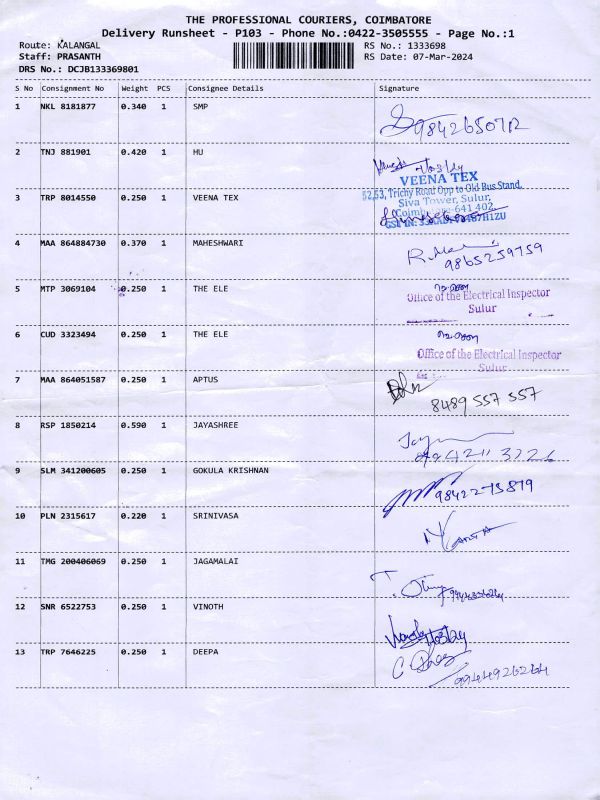 THE PROFESSIONAL COURIERS, COIMBATORE
Delivery Runsheet - P103 - Phone No.:0422-3505555 - Page No.:1
Route: KALANGAL RS No.: 1333698
Staff: PRASANTH RS Date: 07-Mar-2024
DRS No.: DCJB133369801
S No Consignment No Weight PCS Consignee Details Signature
1 NKL 8181877 0.340 1 SMP
9842650712
2 TNJ 881901 0.420 1 HU
VEENA TEX
52,53, Trichy Road Opp to Old Bus Stand,
3 TRP 8014550 0.250 1 VEENA TEX Siva Tower, Sulur,
Coimbatore-641 402.
4 MAA 864884730 0.370 1 MAHESHWARI
9865259759
5 MTP 3069104 0.250 1 THE ELE
Office of the Electrical Inspector
Sulur
6 CUD 3323494 0.250 1 THE ELE
Office of the Electrical Inspector
Sulur
7 MAA 864051587 0.250 1 APTUS
8489 557 557
8 RSP 1850214 0.590 1 JAYASHREE
9 SLM 341200605 0.250 1 GOKULA KRISHNAN
10 PLN 2315617 0.220 1 SRINIVASA
11 TMG 200406069 0.250 1 JAGAMALAI
12 SNR 6522753 0.250 1 VINOTH
13 TRP 7646225 0.250 1 DEEPA